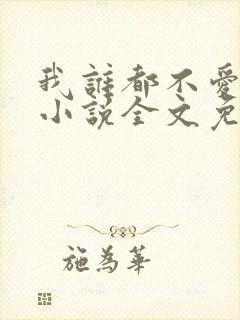 我誰都不愛
小說全文免
施為華